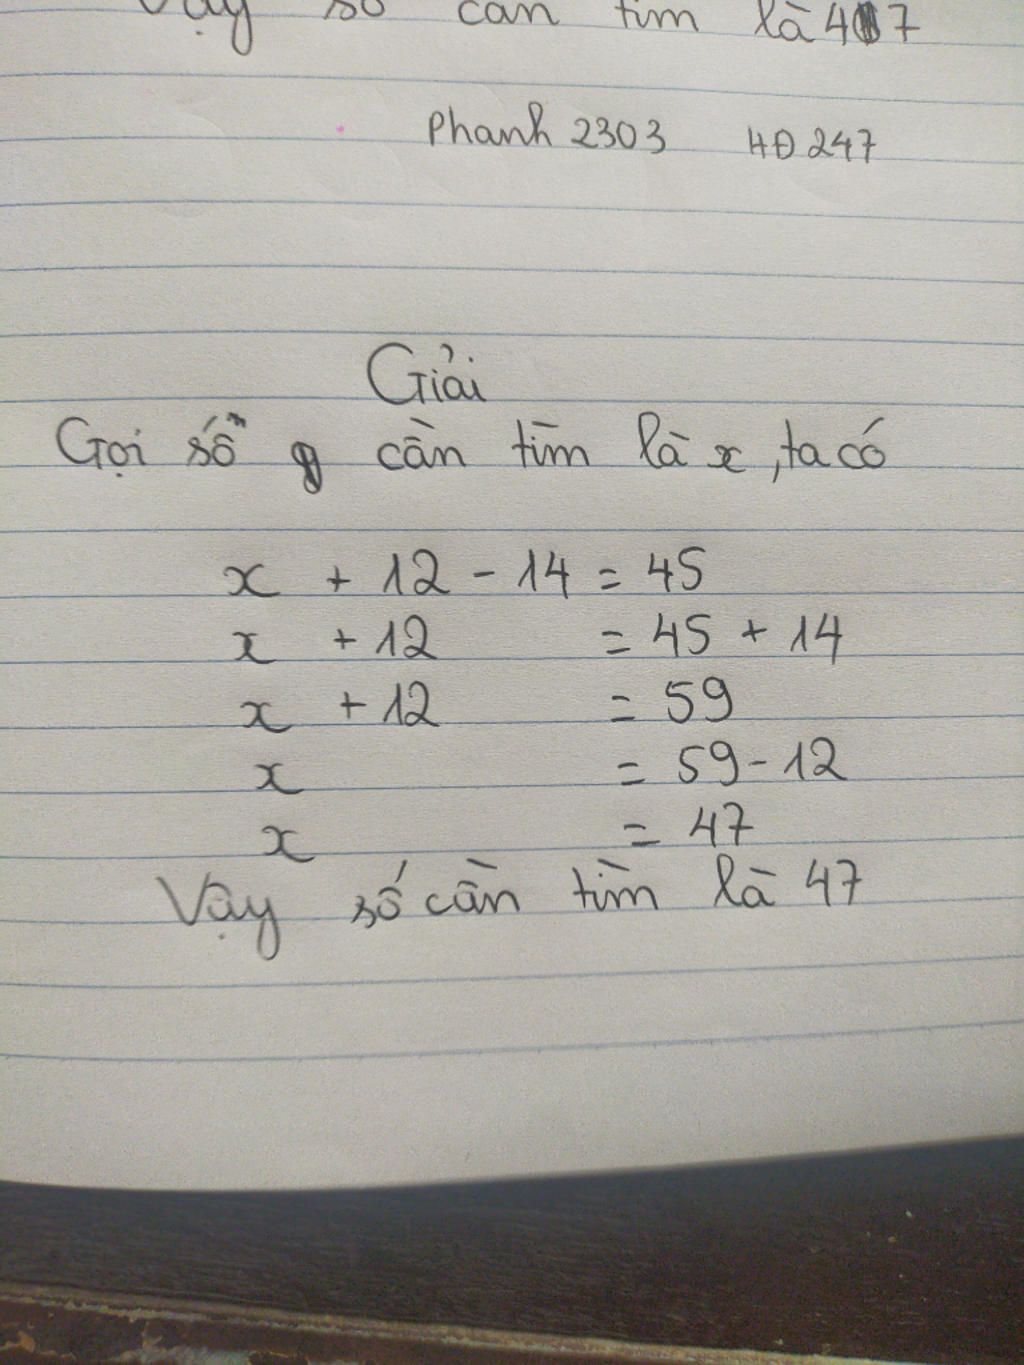 Vậy số cần tìm là 47
Phanh 2303 HĐ 247
Giải
Gọi số cần tìm là x, ta có
x + 12 - 14 = 45
x + 12 = 45 + 14
x + 12 = 59
x = 59 - 12
x = 47
Vậy số cần tìm là 47